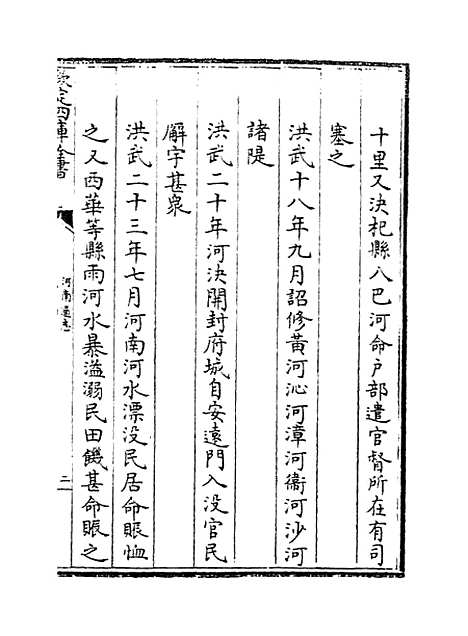 十里又決杞縣入巴河命戸部遣官督所在有司
塞之
洪武十八年九月詔修黄河沁河漳河衞河沙河
諸隄
洪武二十年河決開封府城自安遠門入没官民
廨宇甚衆
洪武二十三年七月河南河水漂没民居命賑恤
之又西華等縣雨河水暴溢溺民田饑甚命賑之
欽定四庫全書
河南通志
二